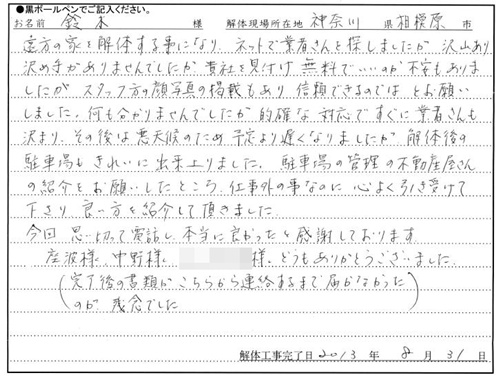 ●黒ボールペンでご記入ください。
お名前 鈴木 様 解体現場所在地 神奈川 県 相模原 市
遠方の家を解体する事になり、ネットで業者さんを探しましたが、沢山あり
決め手がありませんでしたが貴社を見付け無料でいいのか不安もありま
したが、スタッフ方の顔写真の掲載もあり、信頼できるのではとお願い
しました。何も分かりませんでしたが的確な対応ですぐに業者さんも
決まり、その後は悪天候のため予定より遅くなりましたが、解体後の
駐車場もきれいに出来上りました。駐車場の管理の不動産屋さん
の紹介をお願いしたところ、仕事外の事なのに心よく引き受けて
下さり良い方を紹介して頂きました。
今回思い切って電話し、本当に良かったと感謝しております。
座波様、中野様、様、どうもありがとうございました。
(完了後の書類がこちらから連絡するまで届かなかった
のが残念でした)
解体工事完了日 2013 年 8 月 31 日